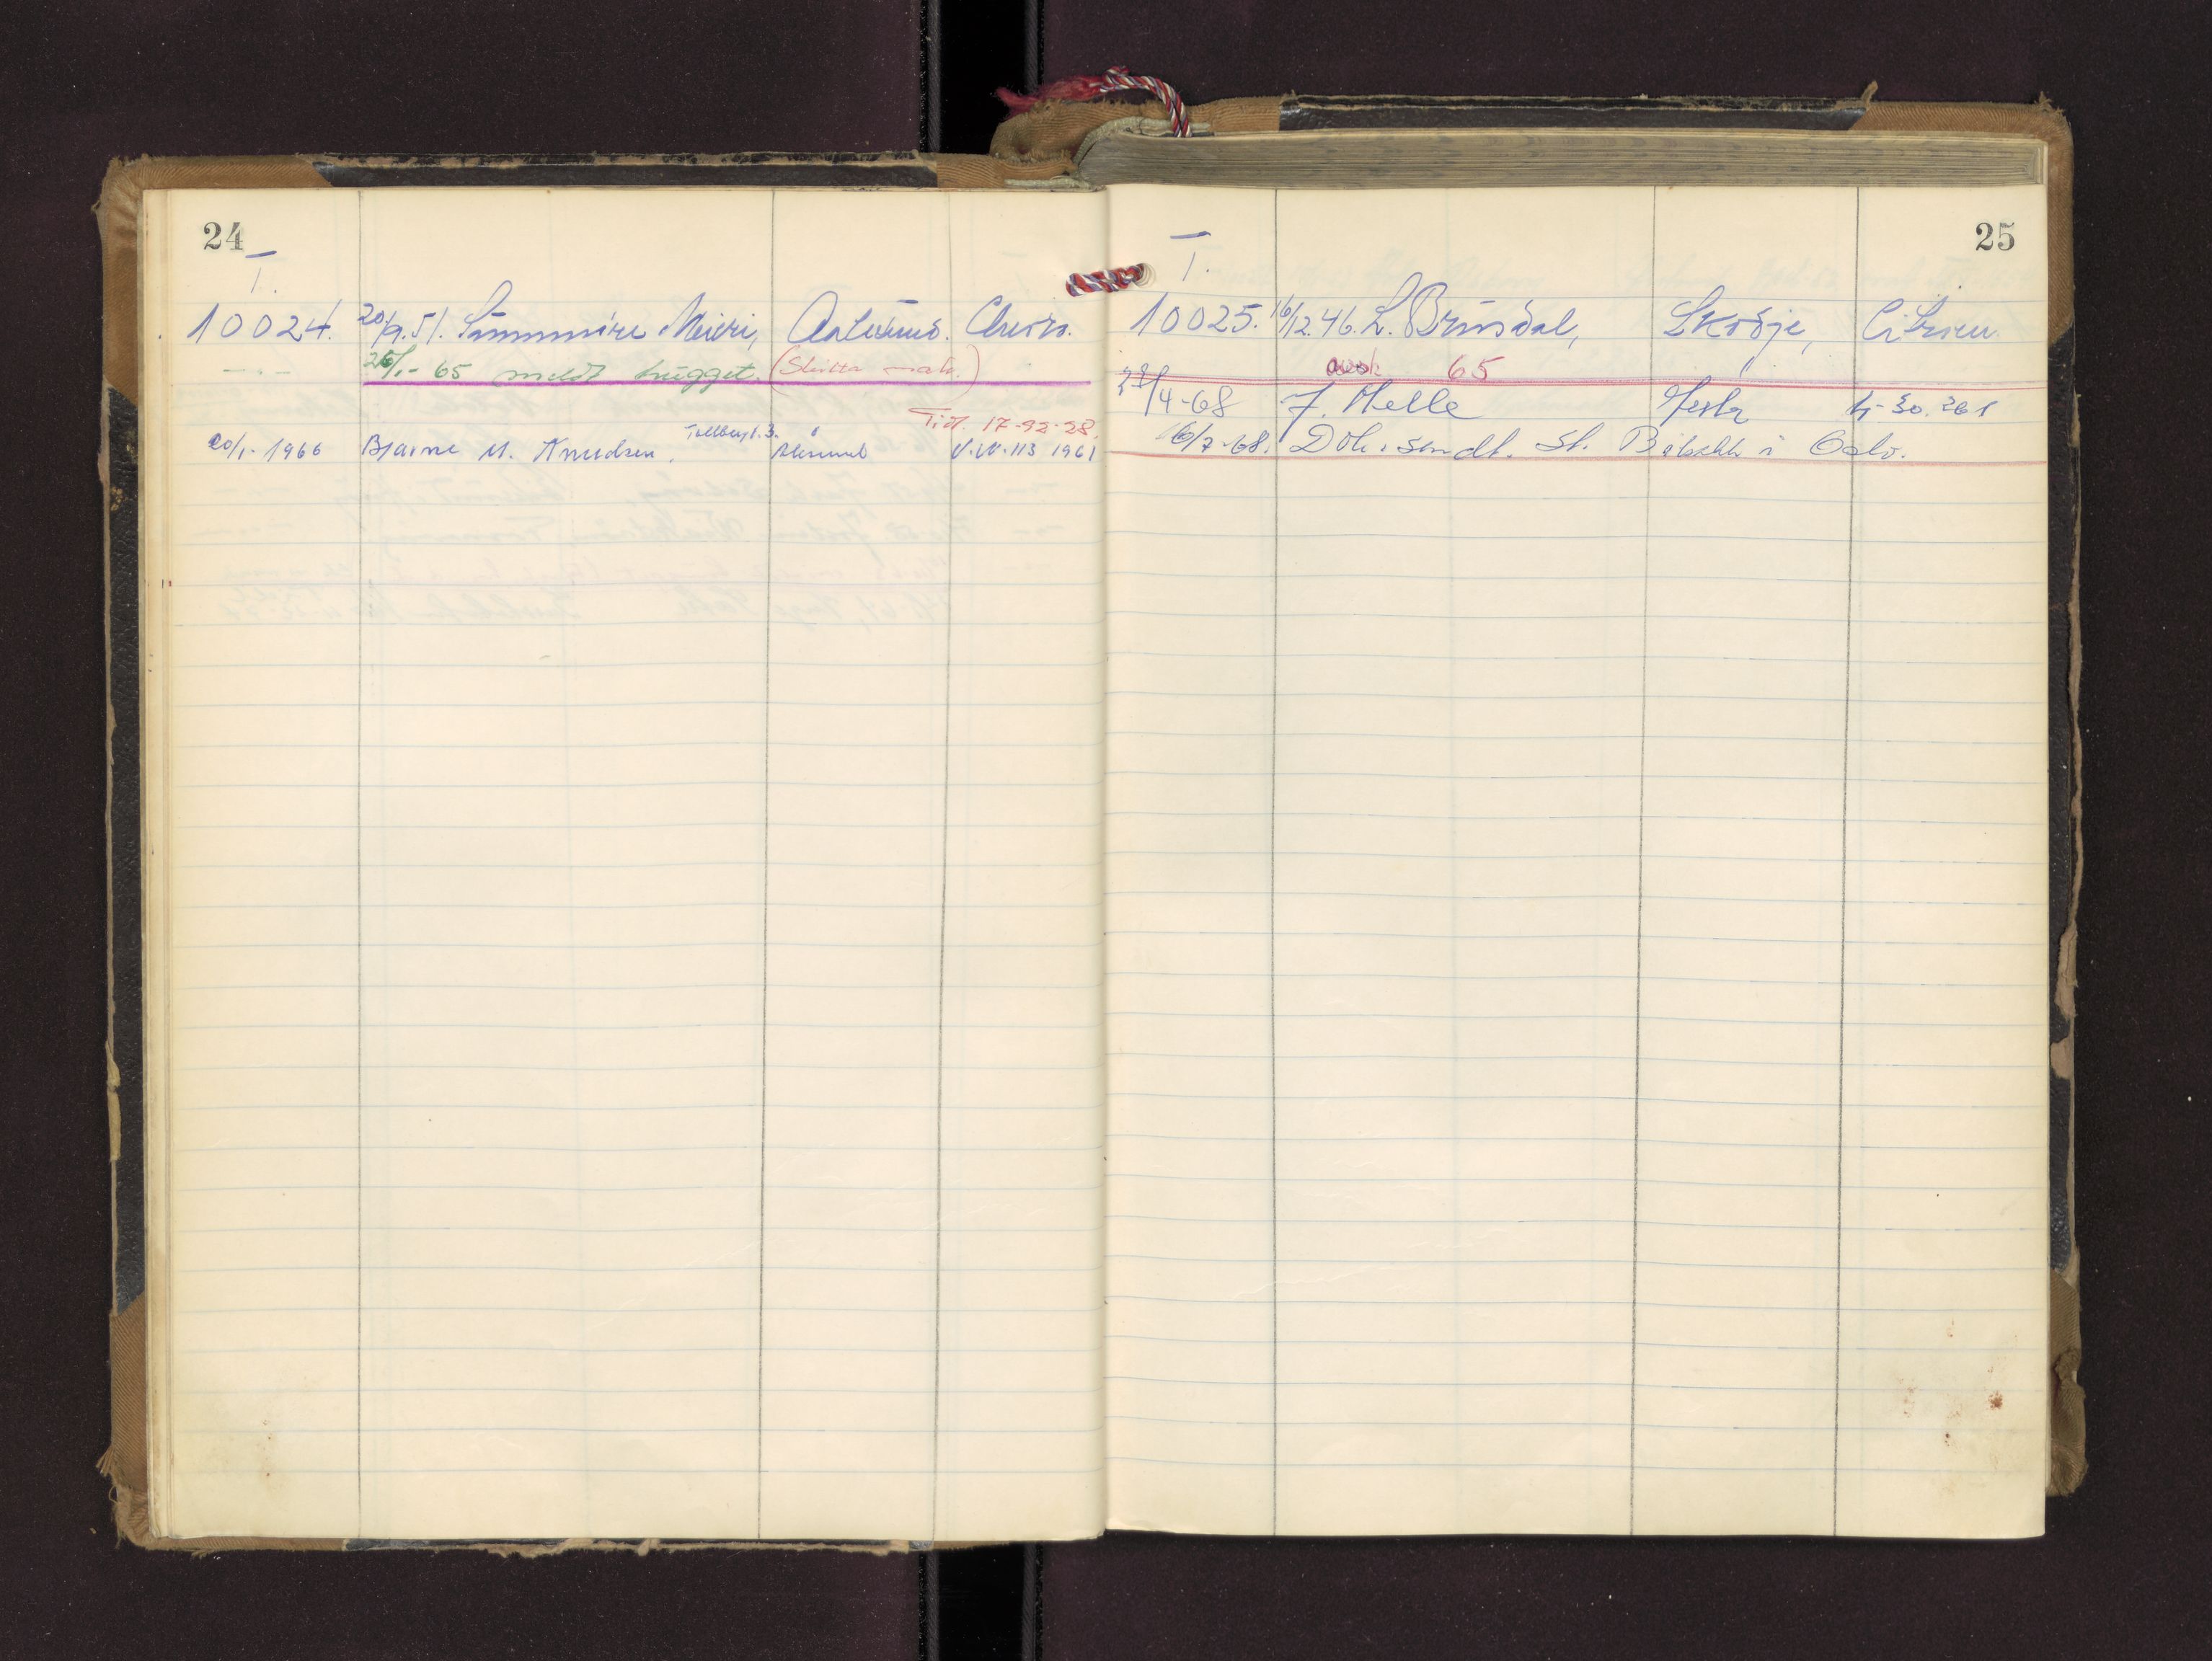 24
T.
10024. 20/9.51. Sunnmøre Meieri, Aalesund. Chevro.
26/1-65 meldt hugget. (Skilter mak.)
Tidl. 17-92-28.
20/1-1966 Bjarne M. Knudsen. Tollbug. 3. Ålesund V.W. 113 1961
25
T.
10025. 16/12.46. L. Brusdal, Skodje, Citroen.
avsk 65
23/4-68 J. Melle
16/7-68. Dok. sendt. st. Bilsakk. i Oslo.